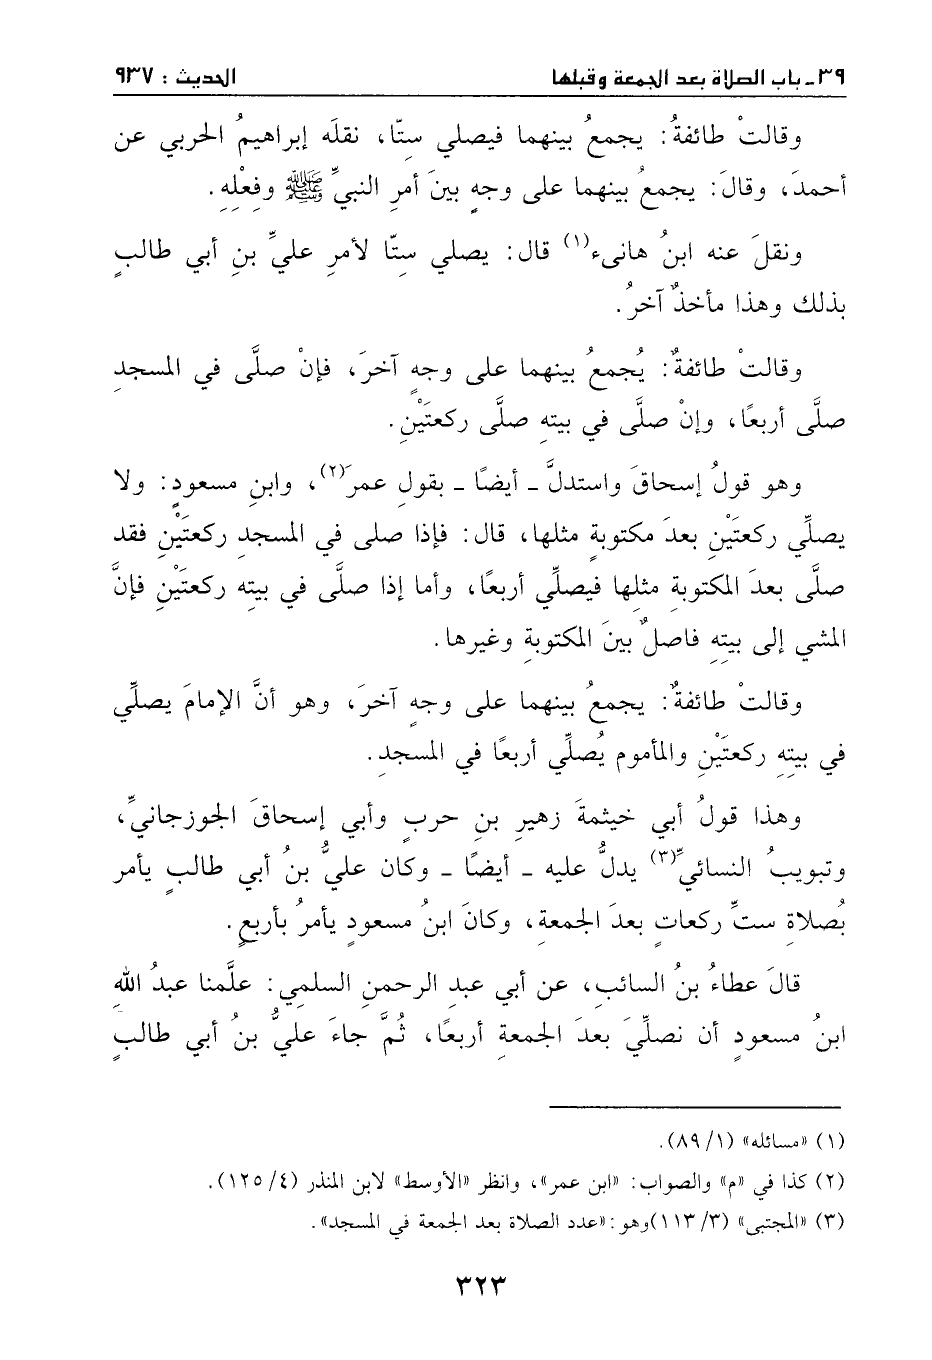 ٣٩ ـ باب الصلاة بعد الجمعة وقبلها الحديث : ٩٣٧
وقالتْ طائفةُ: يجمعُ بينهما فيصلي ستّا، نقلَه إبراهيمُ الحربي عن
أحمدَ، وقالَ: يجمعُ بينهما على وجهٍ بينَ أمرِ النبيِّ ﷺ وفعْلِهِ.
ونقلَ عنه ابنُ هانىء(١) قال: يصلي ستّا لأمرِ عليِّ بنِ أبي طالبٍ
بذلك وهذا مأخذٌ آخرُ.
وقالتْ طائفةٌ: يُجمعُ بينهما على وجهٍ آخرَ، فإنْ صلَّى في المسجدِ
صلَّى أربعًا، وإنْ صلَّى في بيتهِ صلَّى ركعتَيْنِ.
وهو قولُ إسحاقَ واستدلَّ ـ أيضًا ـ بقولِ عمرَ(٢)، وابنِ مسعودٍ: ولا
يصلِّي ركعتَيْنِ بعدَ مكتوبةٍ مثلها، قال: فإذا صلى في المسجدِ ركعتَيْنِ فقد
صلَّى بعدَ المكتوبةِ مثلها فيصلِّي أربعًا، وأما إذا صلَّى في بيتِه ركعتَيْنِ فإنَّ
المشي إلى بيتِهِ فاصلٌ بينَ المكتوبةِ وغيرها.
وقالتْ طائفةٌ: يجمعُ بينهما على وجهٍ آخرَ، وهو أنَّ الإمامَ يصلِّي
في بيتِهِ ركعتَيْنِ والمأموم يُصلِّي أربعًا في المسجدِ.
وهذا قولُ أبي خيثمةَ زهيرِ بنِ حربٍ وأبي إسحاقَ الجوزجانيِّ،
وتبويبُ النسائيِّ(٣) يدلُّ عليه ـ أيضًا ـ وكان عليُّ بنُ أبي طالبٍ يأمر
بُصلاةِ ستِّ ركعاتٍ بعدَ الجمعةِ، وكانَ ابنُ مسعودٍ يأمرُ بأربعٍ.
قالَ عطاءُ بنُ السائبِ، عن أبي عبدِ الرحمنِ السلمي: علَّمنا عبدُ اللهِ
ابنُ مسعودٍ أن نصلِّيَ بعدَ الجمعةِ أربعًا، ثُمَّ جاءَ عليُّ بنُ أبي طالبٍ
(١) «مسائله» (١/ ٨٩).
(٢) كذا في «م» والصواب: «ابن عمر»، وانظر «الأوسط» لابن المنذر (٤/ ١٢٥).
(٣) «المجتبى» (٣/ ١١٣)وهو:«عدد الصلاة بعد الجمعة في المسجد».
٣٢٣